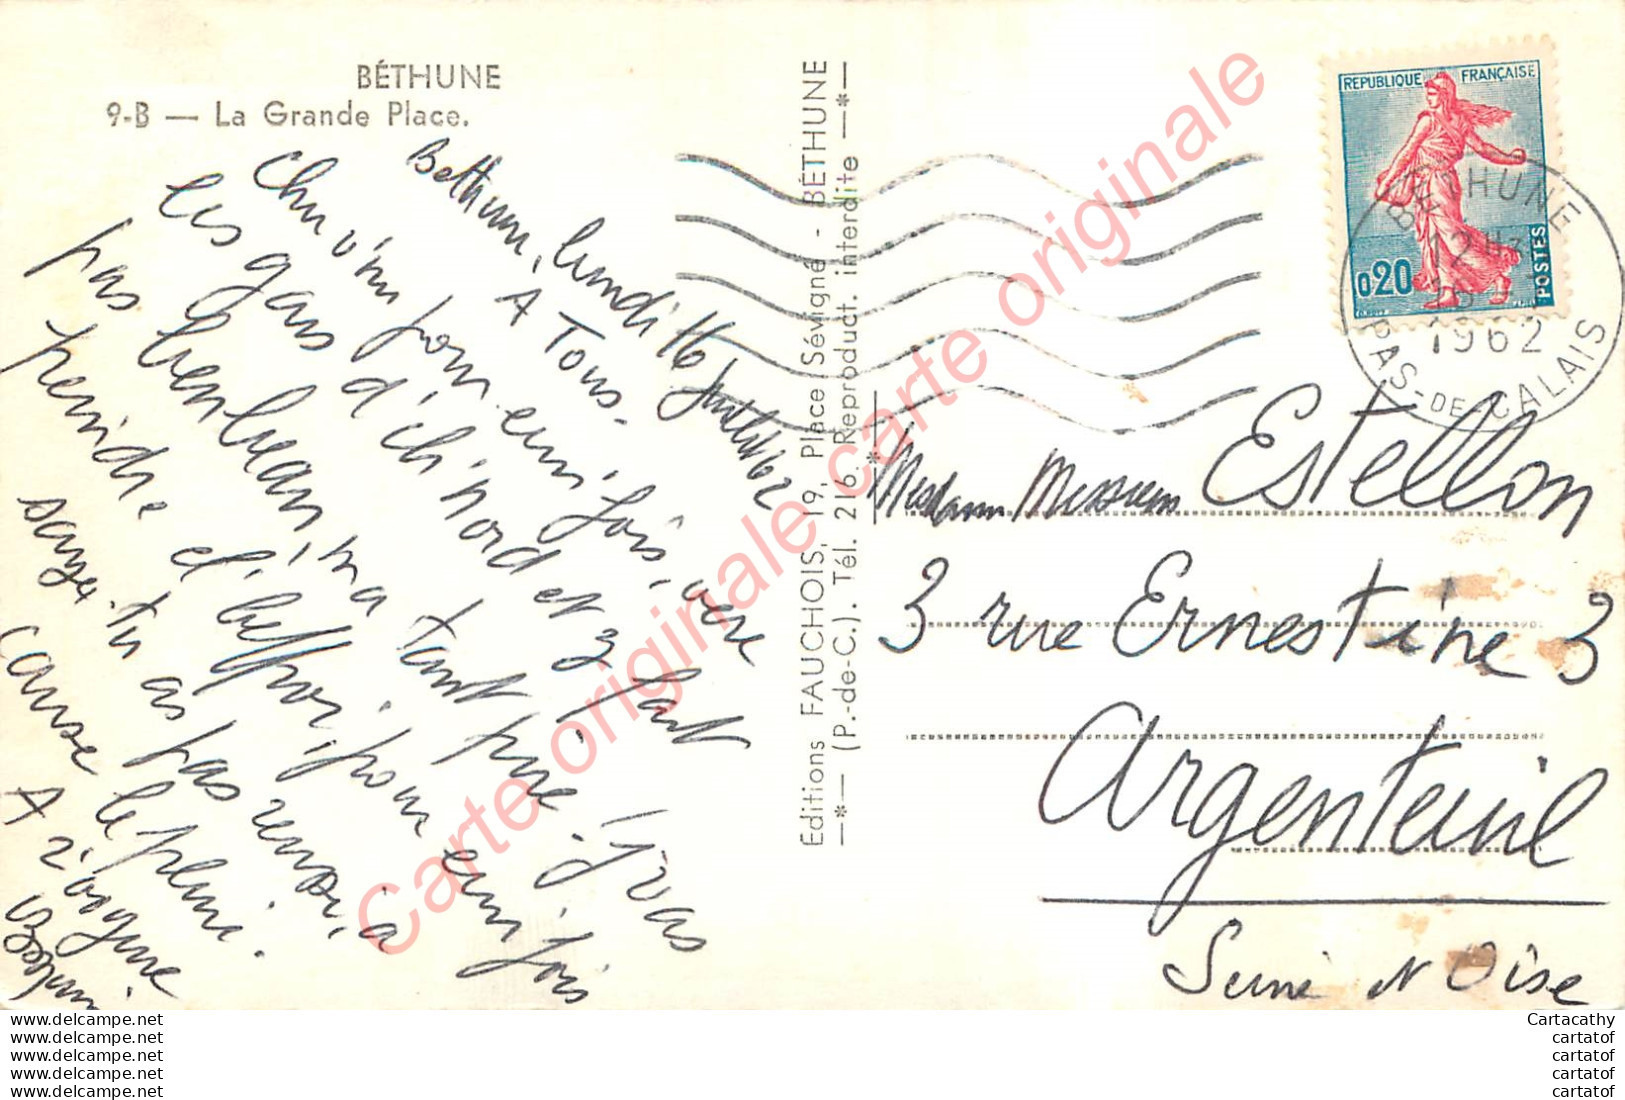 BÉTHUNE
9-B — La Grande Place.
Bethune, lundi 16 Juillet 62
A Tous.
Chu v'nu pour eun' fois, vere
les gars d'ch'Nord et z'fart
pas ben beau, ma tant pire. J'vas
peindre el' beffroi, pour eun' fois
sayer. tu as pas reussi, à
cause le pluie.
A r'voyure
Editions FAUCHOIS, 19, Place Sévigné - BÉTHUNE
—*— (P.-de-C.). Tél. 216. Reproduct. interdite —*—
REPUBLIQUE FRANÇAISE
0,20
POSTES
BETHUNE
12H
1962
PAS-DE-CALAIS
Madame Messieurs Estellon
3 rue Ernestine 3
Argenteuil
Seine et Oise
Carte originale Carte originale Carte originale
www.delcampe.net
www.delcampe.net
www.delcampe.net
www.delcampe.net
www.delcampe.net
Cartacathy
cartatof
cartatof
cartatof
cartatof